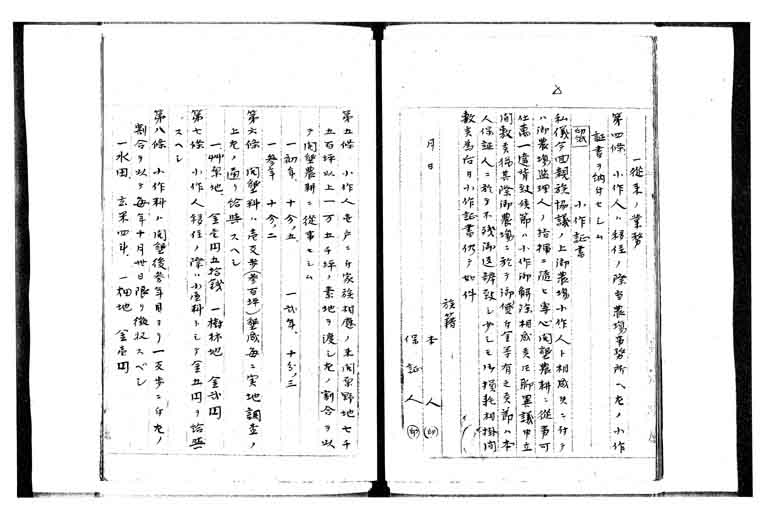 一従来ノ業務
第四條 小作人ハ移住ノ際当農場事務所ヘ左ノ小作
証書ヲ納付セシム
小作証書
私儀今回親族協議ノ上御農場小作人ト相成候ニ付テ
ハ御農場監理人ノ指揮ニ随ヒ専心開墾農耕ニ従事可
仕萬一違背致候節ハ小作御解除相成候共聊異議申立
間敷候尚其際御農場ニ於テ御償却金等有之候節ハ本
人保証人ニ於テ不残御返辨致シ少シモ御損耗相掛間
敷候為後日小作証書仍テ如件
月日
族籍
本人 ㊞
保証人 ㊞
第五條 小作人壱戸ニ付家族相應ノ未開原野地七千
五百坪以上一万五千坪ノ素地ヲ渡シ左ノ割合ヲ以
テ開墾農耕ニ従事セシム
一初年 十分ノ五 一弐年 十分ノ三
一参年 十分ノ二
第六條 開墾料ハ壱反歩(参百坪)墾成毎ニ実地調査ノ
上左ノ通リ給与スベシ
一艸原地 金壱円五拾銭 一樹林地 金弐円
第七條 小作人移住ノ際ハ小屋料トシテ金五円ヲ給与
スベシ
第八條 小作料ハ開墾後参年目ヨリ一反歩ニ付左ノ
割合ヲ以テ毎年十月卅日限リ徴収スベシ
一水田 玄米四斗 一畑地 金壱円